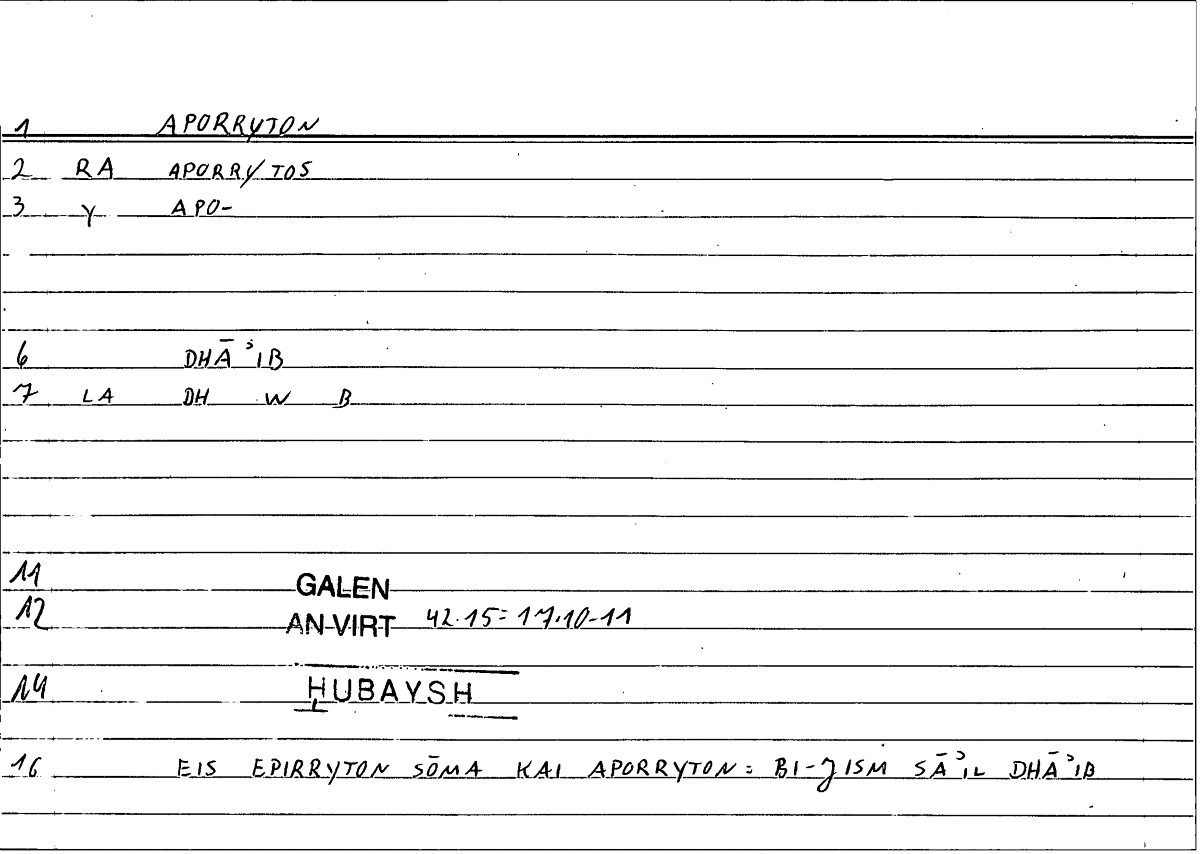 1 APORRYTON
2 RA APORRYTOS
3 Y APO-
6 DHĀʾIB
7 LA DH W B
11 GALEN
12 AN VIRT 42.15=17.10-11
14 ḤUBAYSH
16 EIS EPIRRYTON SŌMA KAI APORRYTON: BI-JISM SĀʾIL DHĀʾIB